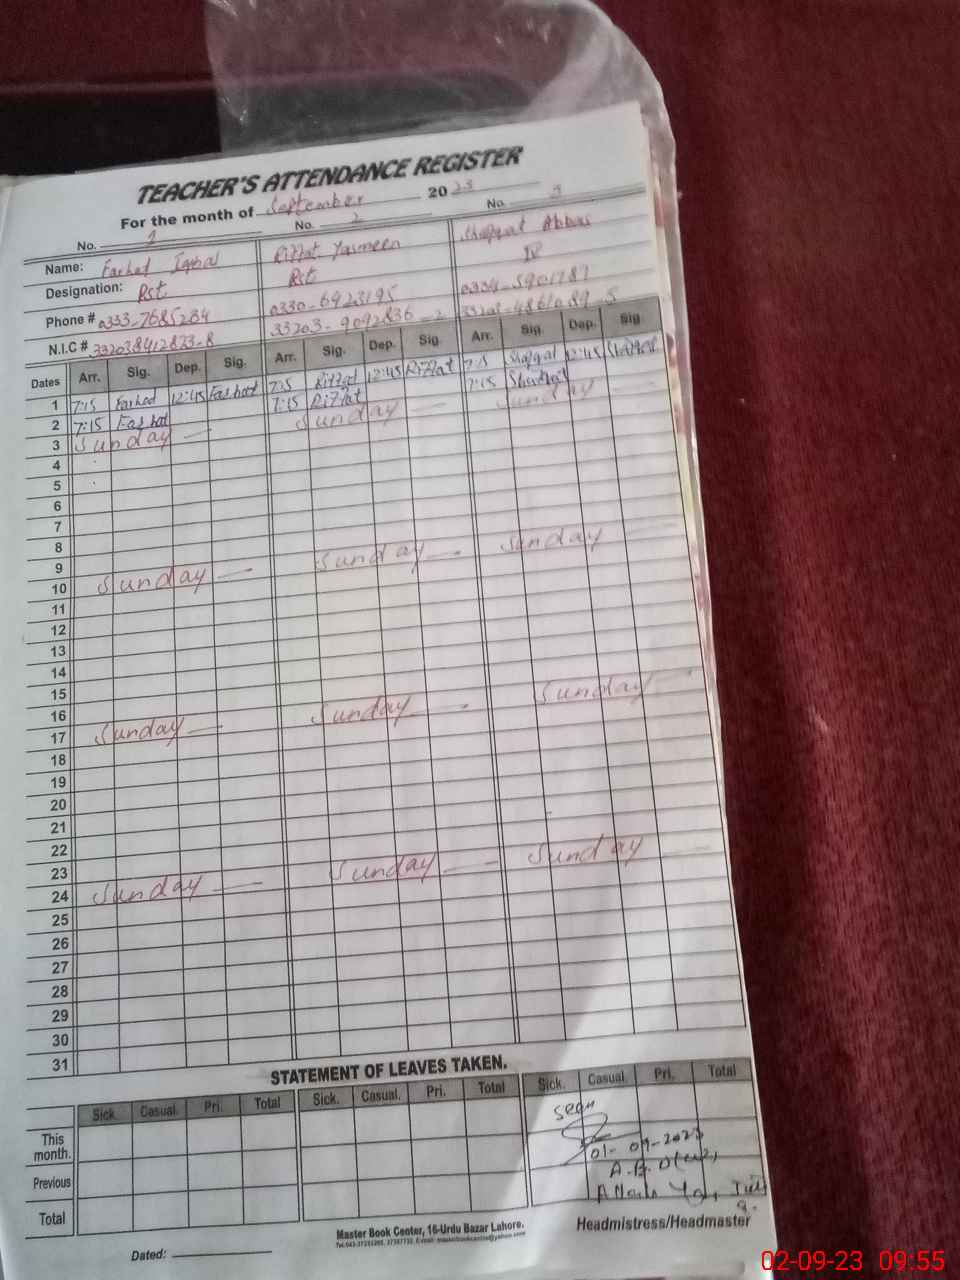 TEACHER'S ATTENDANCE REGISTER
For the month of September 2023
No. 1 No. 2 No. 3
Name: Farhat Iqbal Riffat Yasmeen Shafqat Abbas
Designation: Pst Pst IV
Phone # 0333-7685284 0330-6923195
N.I.C # 33203-9092836-2
Dates Arr. Sig. Dep. Sig. Arr. Sig. Dep. Sig. Arr. Sig. Dep. Sig
1 7:15 Farhat 12:45 Farhat 7:15 Riffat 12:45 Riffat 7:15 Shafqat 12:45 Shafqat
2 7:15 Farhat 7:15 Riffat 7:15 Shafqat
3 Sunday Sunday Sunday
4
5
6
7
8
9
10 Sunday Sunday Sunday
11
12
13
14
15
16
17 Sunday Sunday Sunday
18
19
20
21
22
23
24 Sunday Sunday Sunday
25
26
27
28
29
30
31
STATEMENT OF LEAVES TAKEN.
Sick. Casual. Pri. Total Sick. Casual. Pri. Total Sick. Casual. Pri. Total
This month.
Seen
01-09-2023
Previous
Total
Headmistress/Headmaster
Master Book Center, 16-Urdu Bazar Lahore.
Dated:
02-09-23 09:55